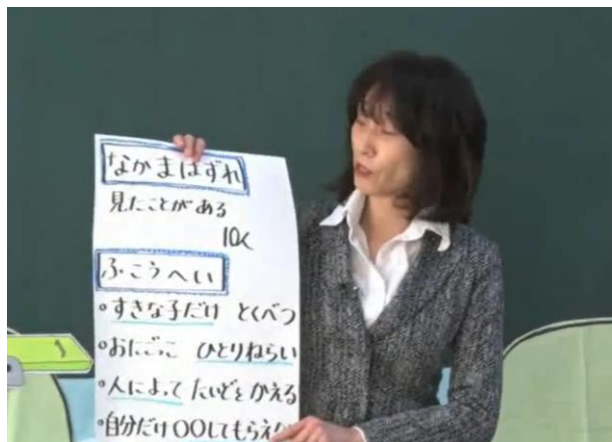 なかまはずれ
見たことがある
10く
ふこうへい
・すきな子だけ とくべつ
・おにごっこ ひとりねらい
・人によって たいどをかえる
・自分だけ〇〇してもらえ